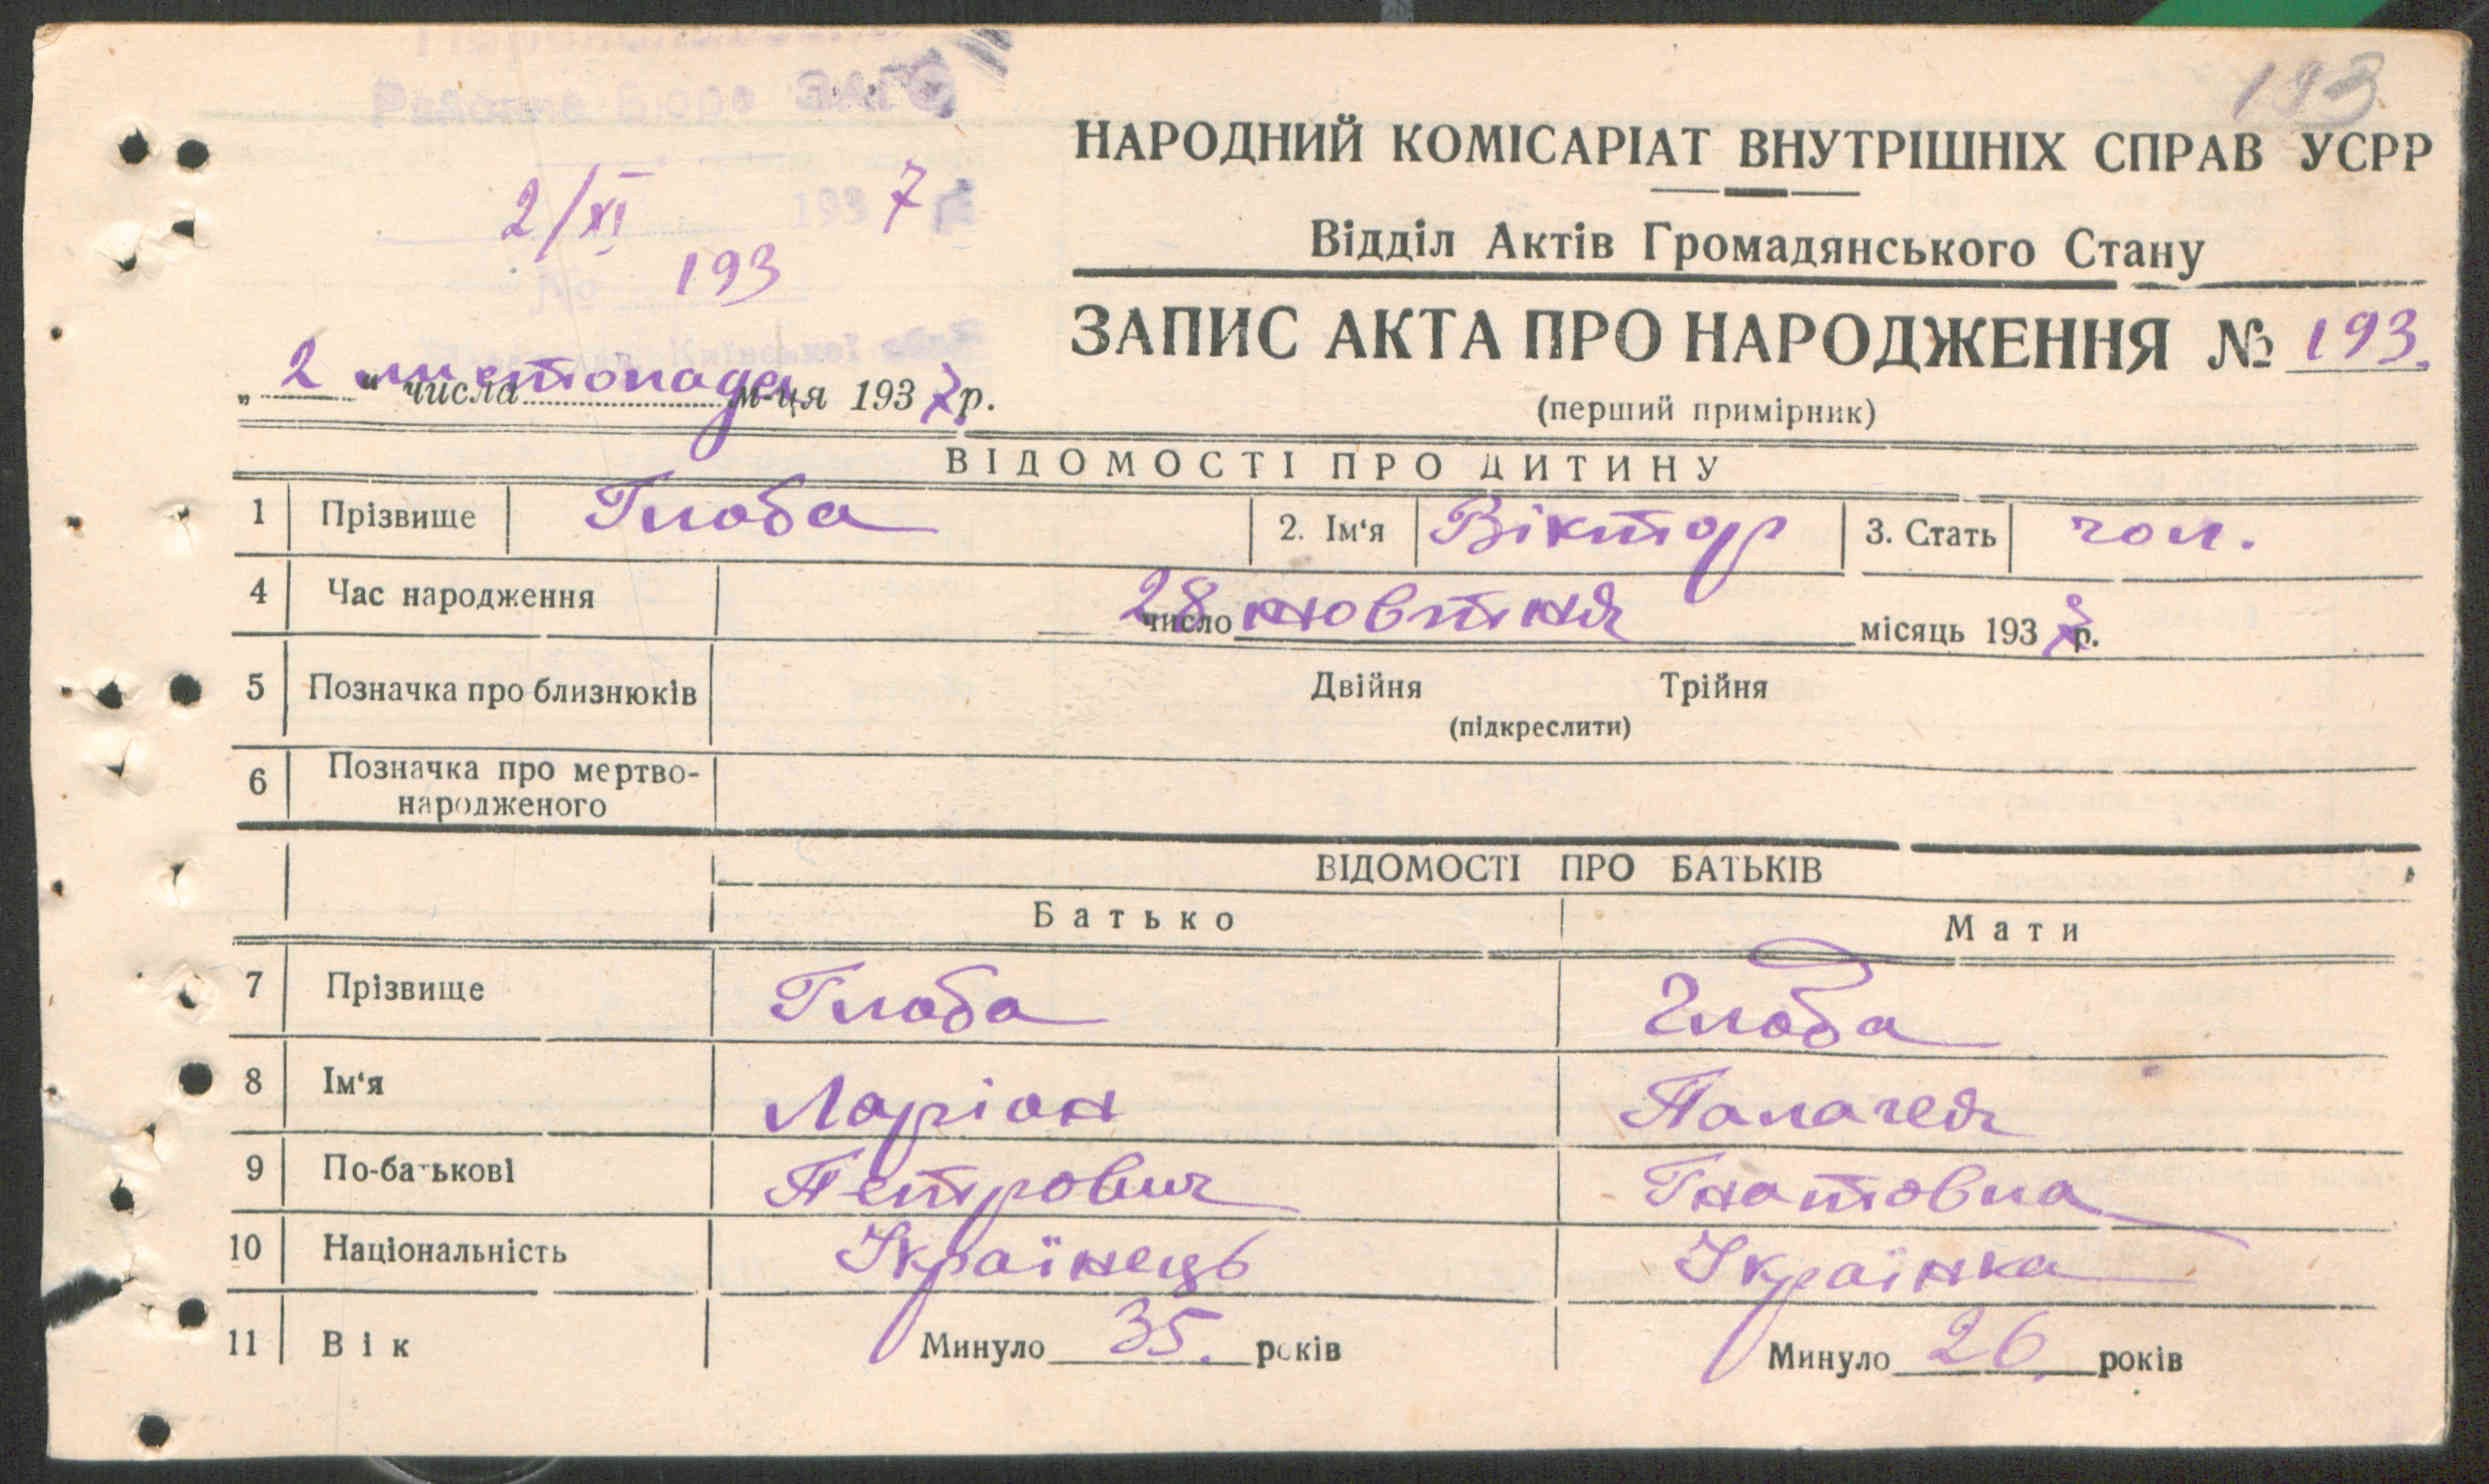 193
Районне Бюро ЗАГС
2/XI 1937 р.
№ 193
Київської
НАРОДНИЙ КОМІСАРІАТ ВНУТРІШНІХ СПРАВ УСРР
Відділ Актів Громадянського Стану
ЗАПИС АКТА ПРО НАРОДЖЕННЯ № 193.
(перший примірник)
„2“ числа листопада м-ця 1937 р.
ВІДОМОСТІ ПРО ДИТИНУ
1 Прізвище Глоба 2. Ім‘я Віктор 3. Стать чол.
4 Час народження 28 число жовтня місяць 1937 р.
5 Позначка про близнюків Двійня Трійня
(підкреслити)
6 Позначка про мертво-
народженого
ВІДОМОСТІ ПРО БАТЬКІВ
Батько Мати
7 Прізвище Глоба Глоба
8 Ім‘я Ларіон Палагея
9 По-батькові Петрович Гнатовна
10 Національність Українець Українка
11 Вік Минуло 35. років Минуло 26. років